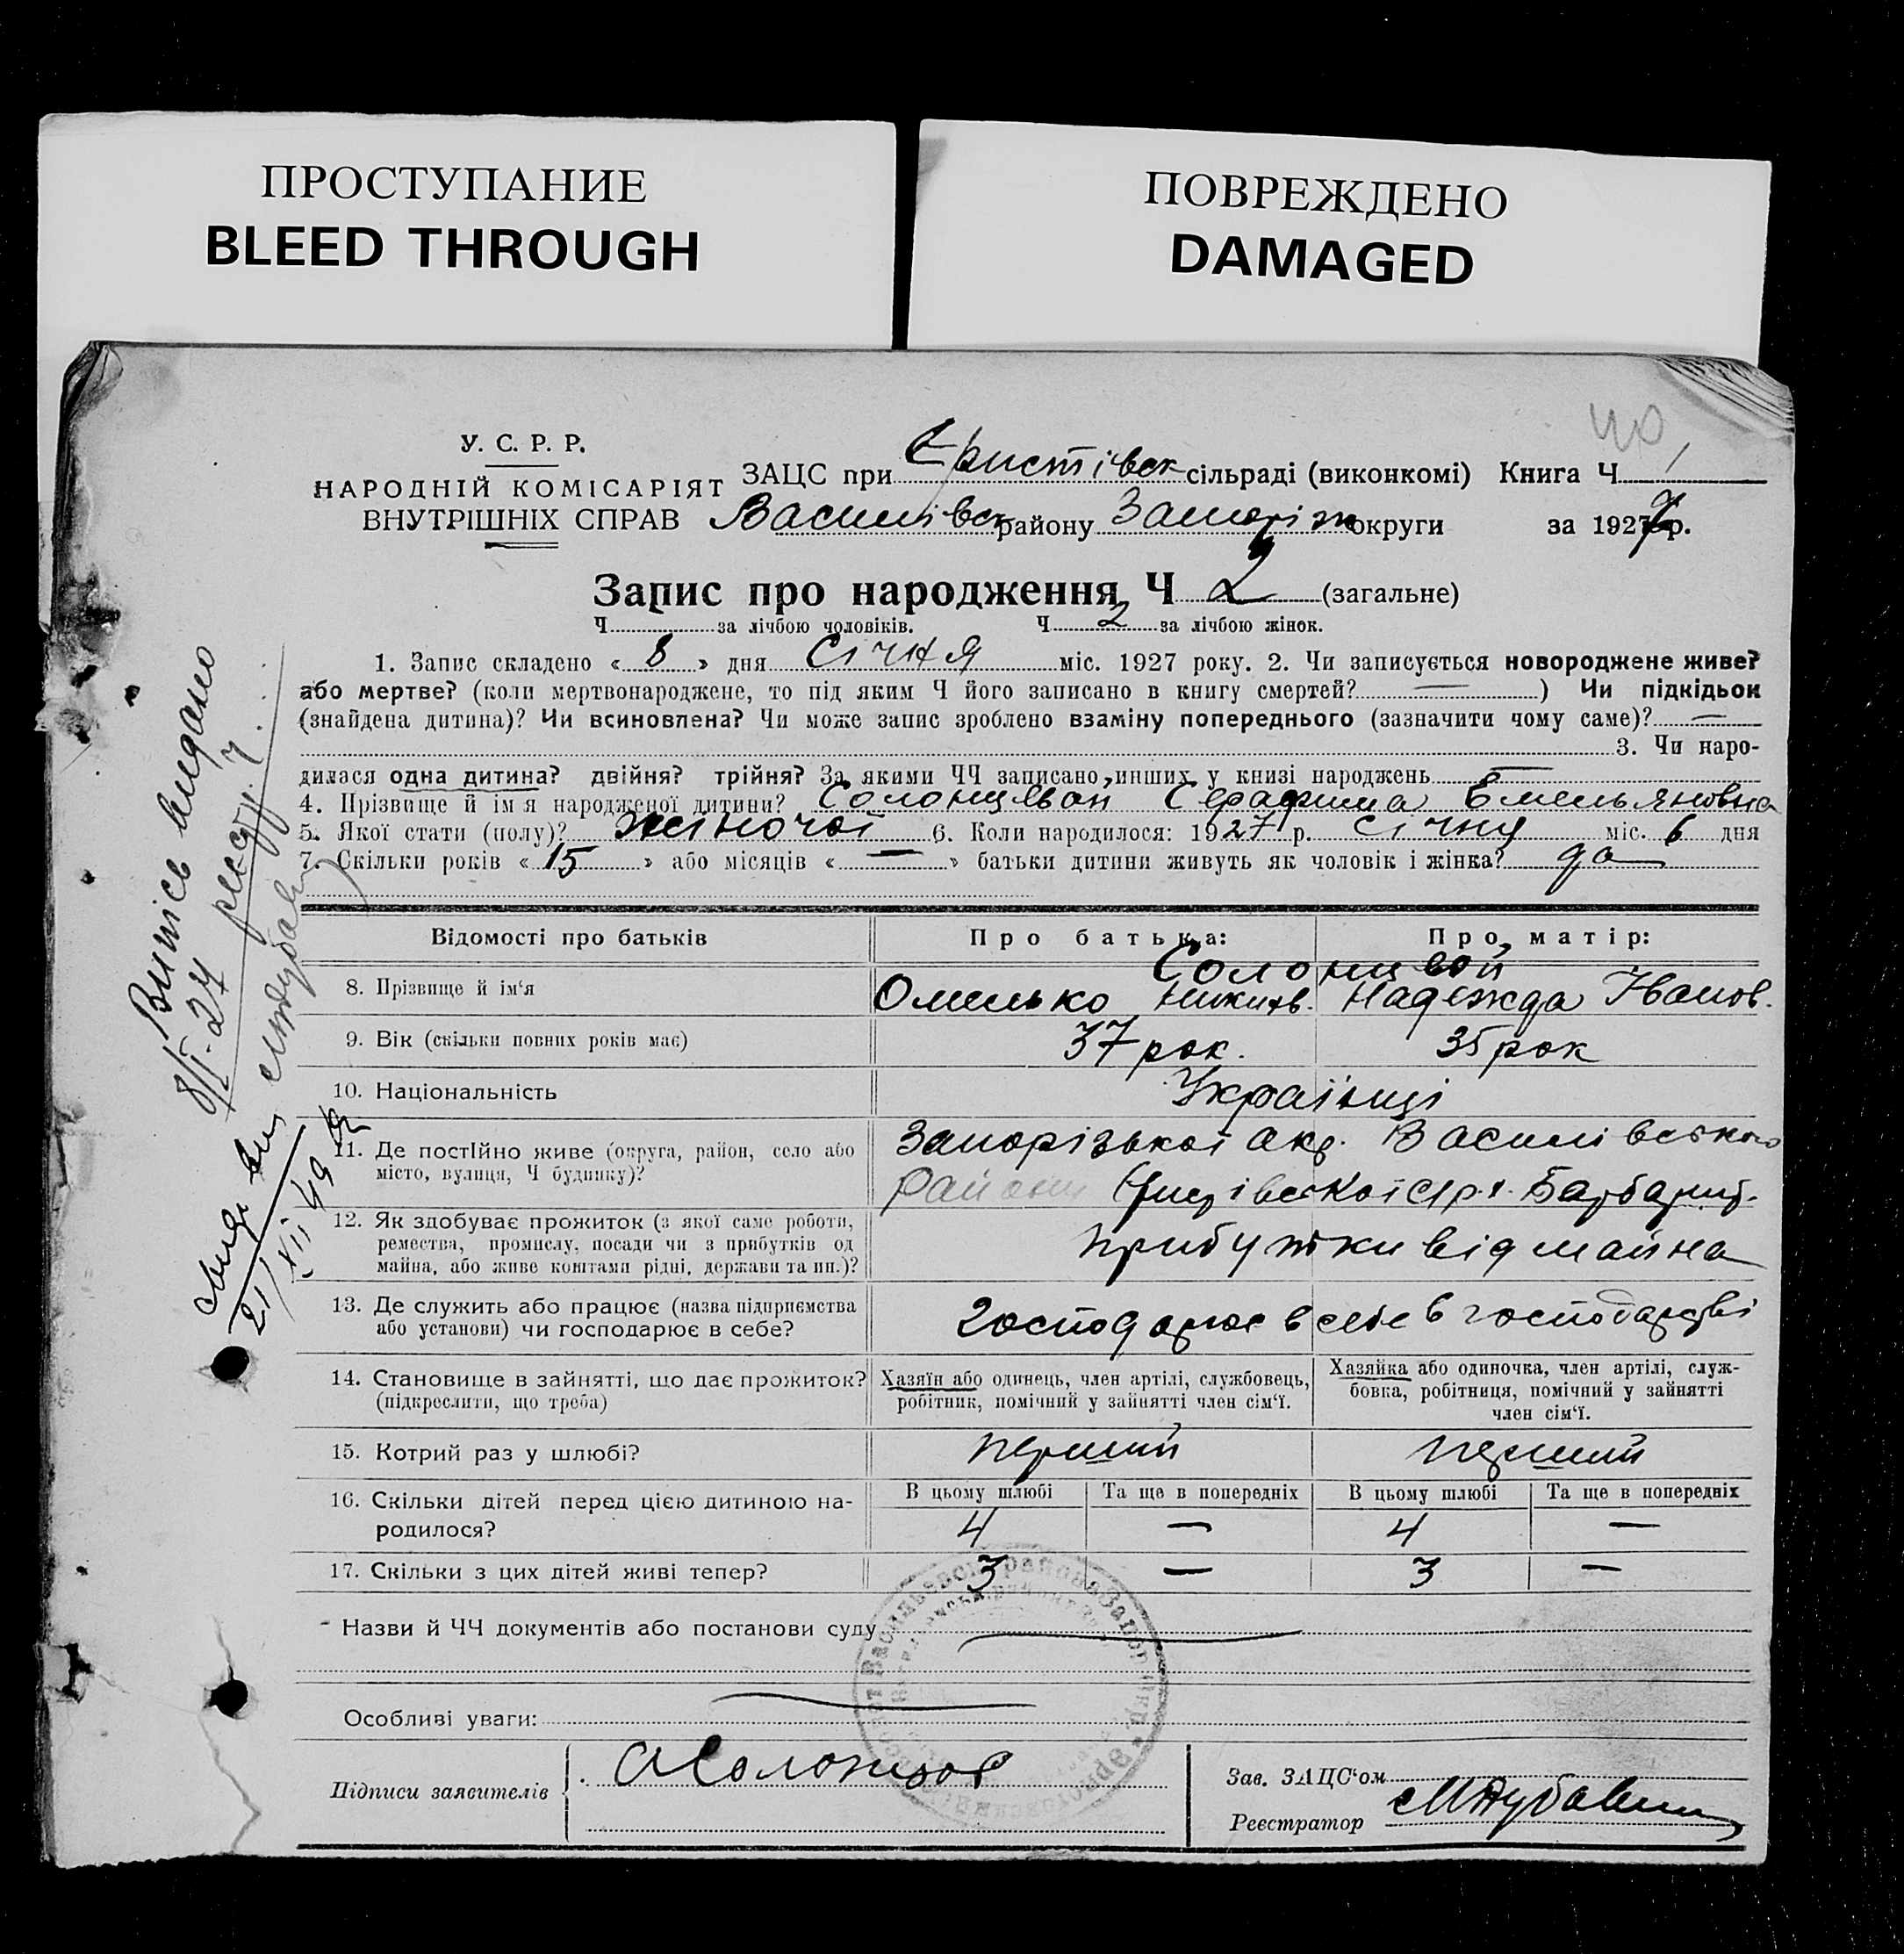 ПРОСТУПАНИЕ
BLEED THROUGH
ПОВРЕЖДЕНО
DAMAGED
У. С. Р. Р.
НАРОДНІЙ КОМІСАРІЯТ
ВНУТРІШНІХ СПРАВ
ЗАЦС при Єристівск сільраді (виконкомі) Книга Ч 1
Василівск району Запоріж округи за 1927 р.
Запис про народження Ч 2 (загальне)
Ч за лічбою чоловіків. Ч 2 за лічбою жінок.
1. Запис складено « 8 » дня Січня міс. 1927 року. 2. Чи записується новороджене живе?
або мертве? (коли мертвонароджене, то під яким Ч його записано в книгу смертей? — ) Чи підкідьок
(знайдена дитина)? Чи всиновлена? Чи може запис зроблено взаміну попереднього (зазначити чому саме)? —
3. Чи наро-
дилася одна дитина? двійня? трійня? За якими ЧЧ записано инших у книзі народжень —
4. Прізвище й ім я народженої дитини? Солонцевой Серафима Емельяновна
5. Якої стати (полу)? жіночої 6. Коли народилося: 1927 р. січня міс. 6 дня
7. Скільки років « 15 » або місяців « — » батьки дитини живуть як чоловік і жінка? да
Відомості про батьків
Про батька:
Про матір:
Солонцевой
8. Прізвище й ім‘я
Омелько Никитв. Надежда Іванов.
9. Вік (скільки повних років має)
37 рок. 35 рок
10. Національність
Українці
11. Де постійно живе (округа, район, село або
місто, вулиця, Ч будинку)?
Запорізької окр. Василівського
району
12. Як здобуває прожиток (з якої саме роботи,
ремества, промислу, посади чи з прибутків од
майна, або живе коштами рідні, держави та ин.)?
прибутки від майна
13. Де служить або працює (назва підприємства
або установи) чи господарює в себе?
Господарює в себе в господарстві
14. Становище в зайнятті, що дає прожиток?
(підкреслити, що треба)
Хазяїн або одинець, член артілі, службовець,
робітник, помічний у зайнятті член сім‘ї.
Хазяйка або одиночка, член артілі, служ-
бовка, робітниця, помічний у зайнятті
член сім‘ї.
15. Котрий раз у шлюбі?
перший перший
16. Скільки дітей перед цією дитиною на-
родилося?
В цьому шлюбі Та ще в попередніх В цьому шлюбі Та ще в попередніх
4 — 4 —
17. Скільки з цих дітей живі тепер?
3 — 3 —
Назви й ЧЧ документів або постанови суду
Особливі уваги:
Підписи заявителів
АСолонцов
Зав. ЗАЦС‘ом
Реєстратор
Випісь видано
8/I-27 реєстр. Ч.
21/XII 49